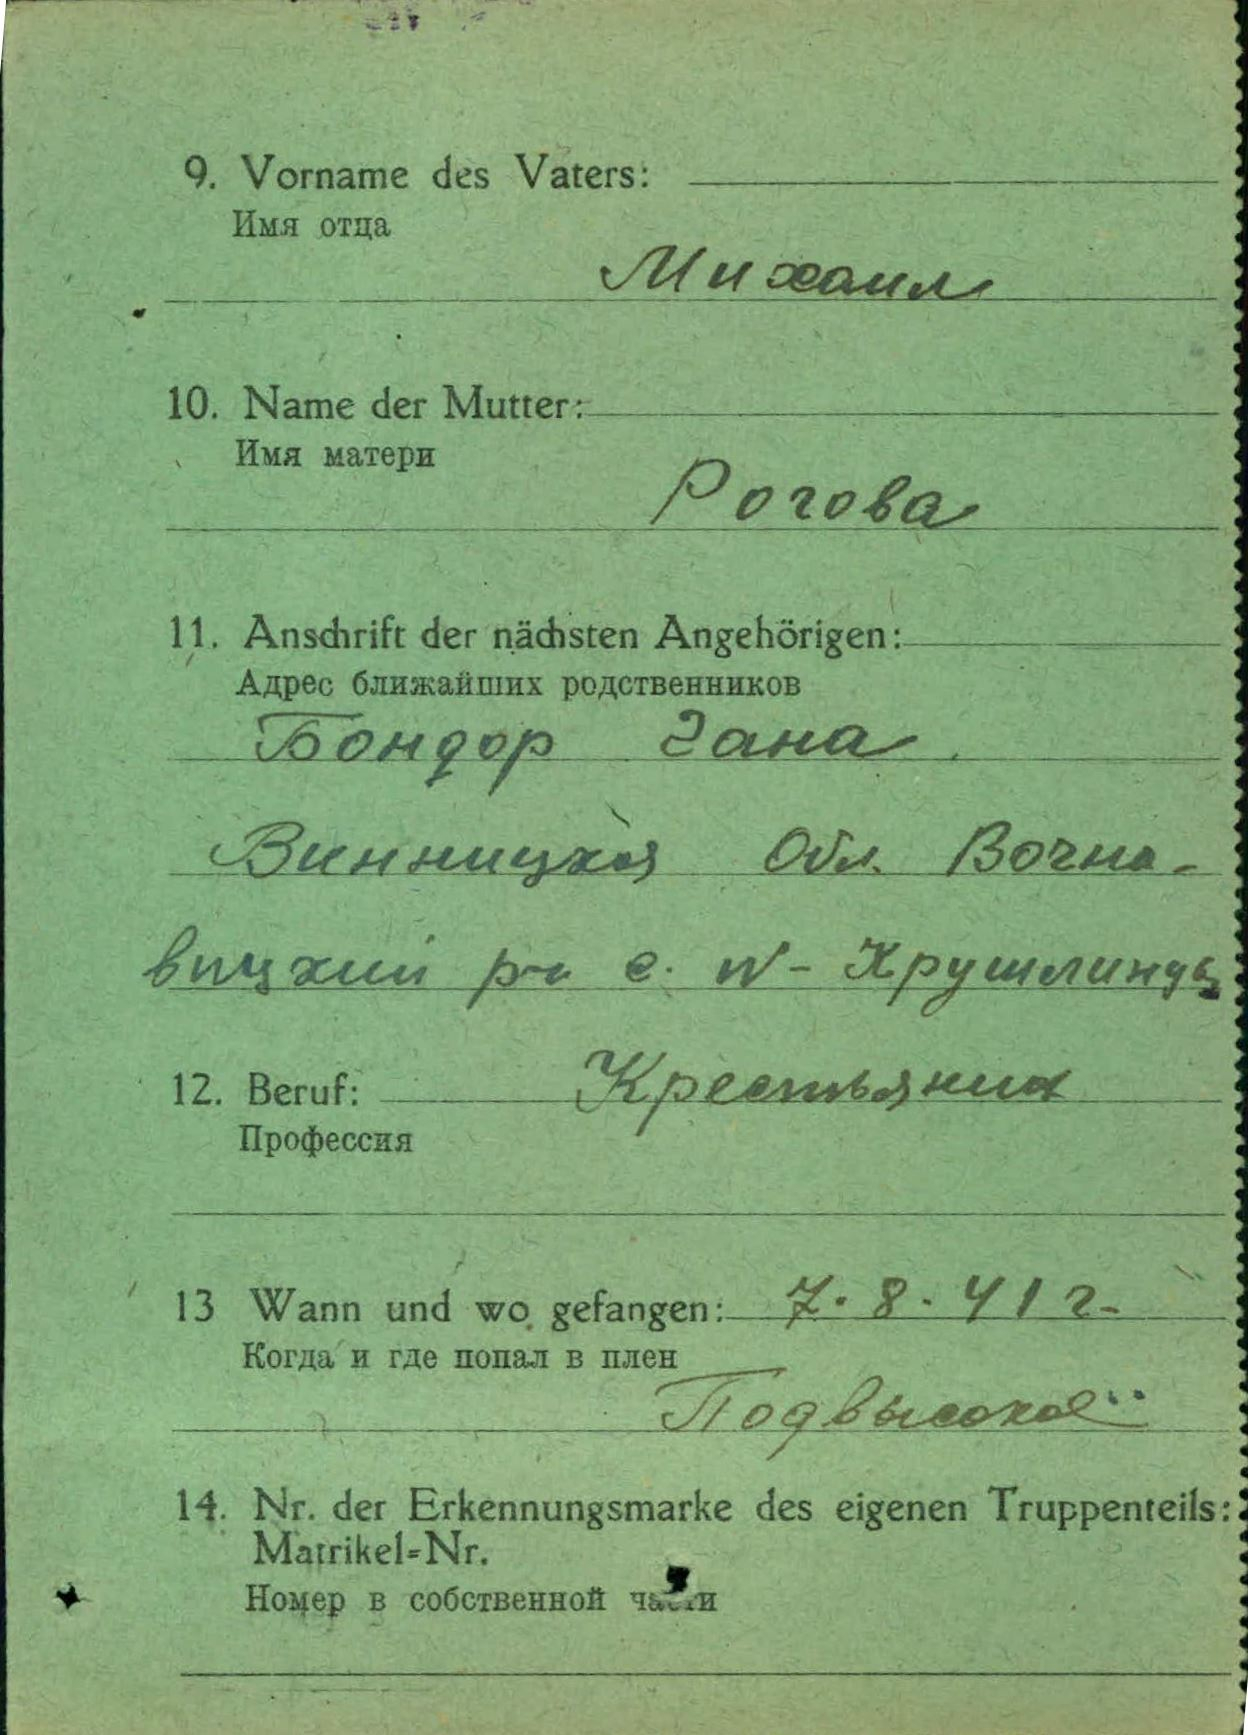 9. Vorname des Vaters:
Имя отца
Михаил
10. Name der Mutter:
Имя матери
Рогова
11. Anschrift der nächsten Angehörigen:
Адрес ближайших родственников
Бондор Гана
Винницкая Обл. Вочна-
вицкий р-н с. N - Крушлинцы
12. Beruf: Крестьянин
Профессия
13 Wann und wo gefangen: 7. 8. 41 г.
Когда и где попал в плен
Подвысокое
14. Nr. der Erkennungsmarke des eigenen Truppenteils:
Matrikel=Nr.
Номер в собственной части